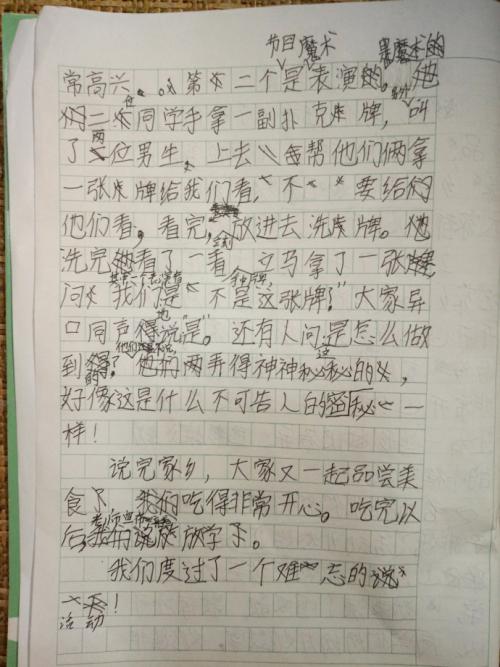 节目 魔术 是魔术的
常高兴。第二个是表演的。他
们二位同学手拿一副扑克牌,叫
了两位男生,上去帮他们俩拿
一张牌给我们看,不要给
他们看,看完,放进去洗牌。他
洗完看了一看,立马拿了一张牌
问我们是“不是这张牌?”大家异
口同声得说“是”。还有人问是怎么做
到的?他们两弄得神神秘秘的,
好像这是什么不可告人的密秘一
样!
说完家乡,大家又一起品尝美
食了,我们吃得非常开心。吃完以
后放学了。
我们度过了一个难忘的说
活动!